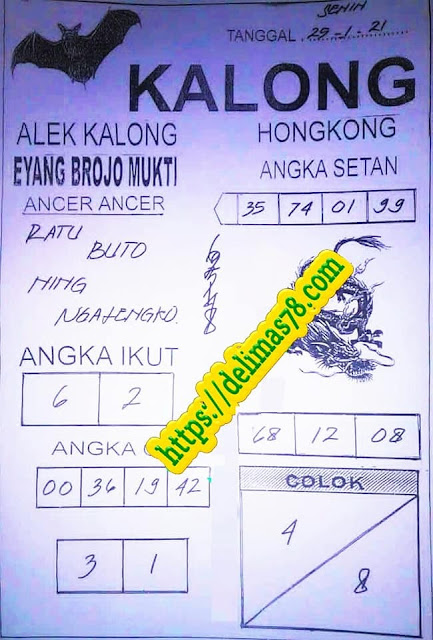 SENIN
TANGGAL . 29-1-21
KALONG
ALEK KALONG
HONGKONG
EYANG BROJO MUKTI
ANGKA SETAN
ANCER ANCER
35 74 01 99
RATU
BUTO
NING
NGALENGKO.
https://delimas78.com
ANGKA IKUT
6 2
68 12 08
ANGKA
00 36 19 42
COLOK
4
8
3 1